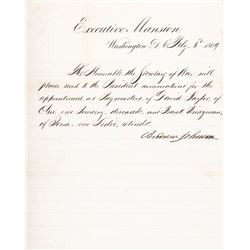 Executive Mansion
Washington D.C. Feby. 5th 1869
The Honorable the Secretary of War will
please send to the President nominations for the
appointment, as Paymasters, of David Taylor, of
Ohio, vice deceased, and Frank Bridgman,
of Penna. vice Leslie, retired.
Andrew Johnson